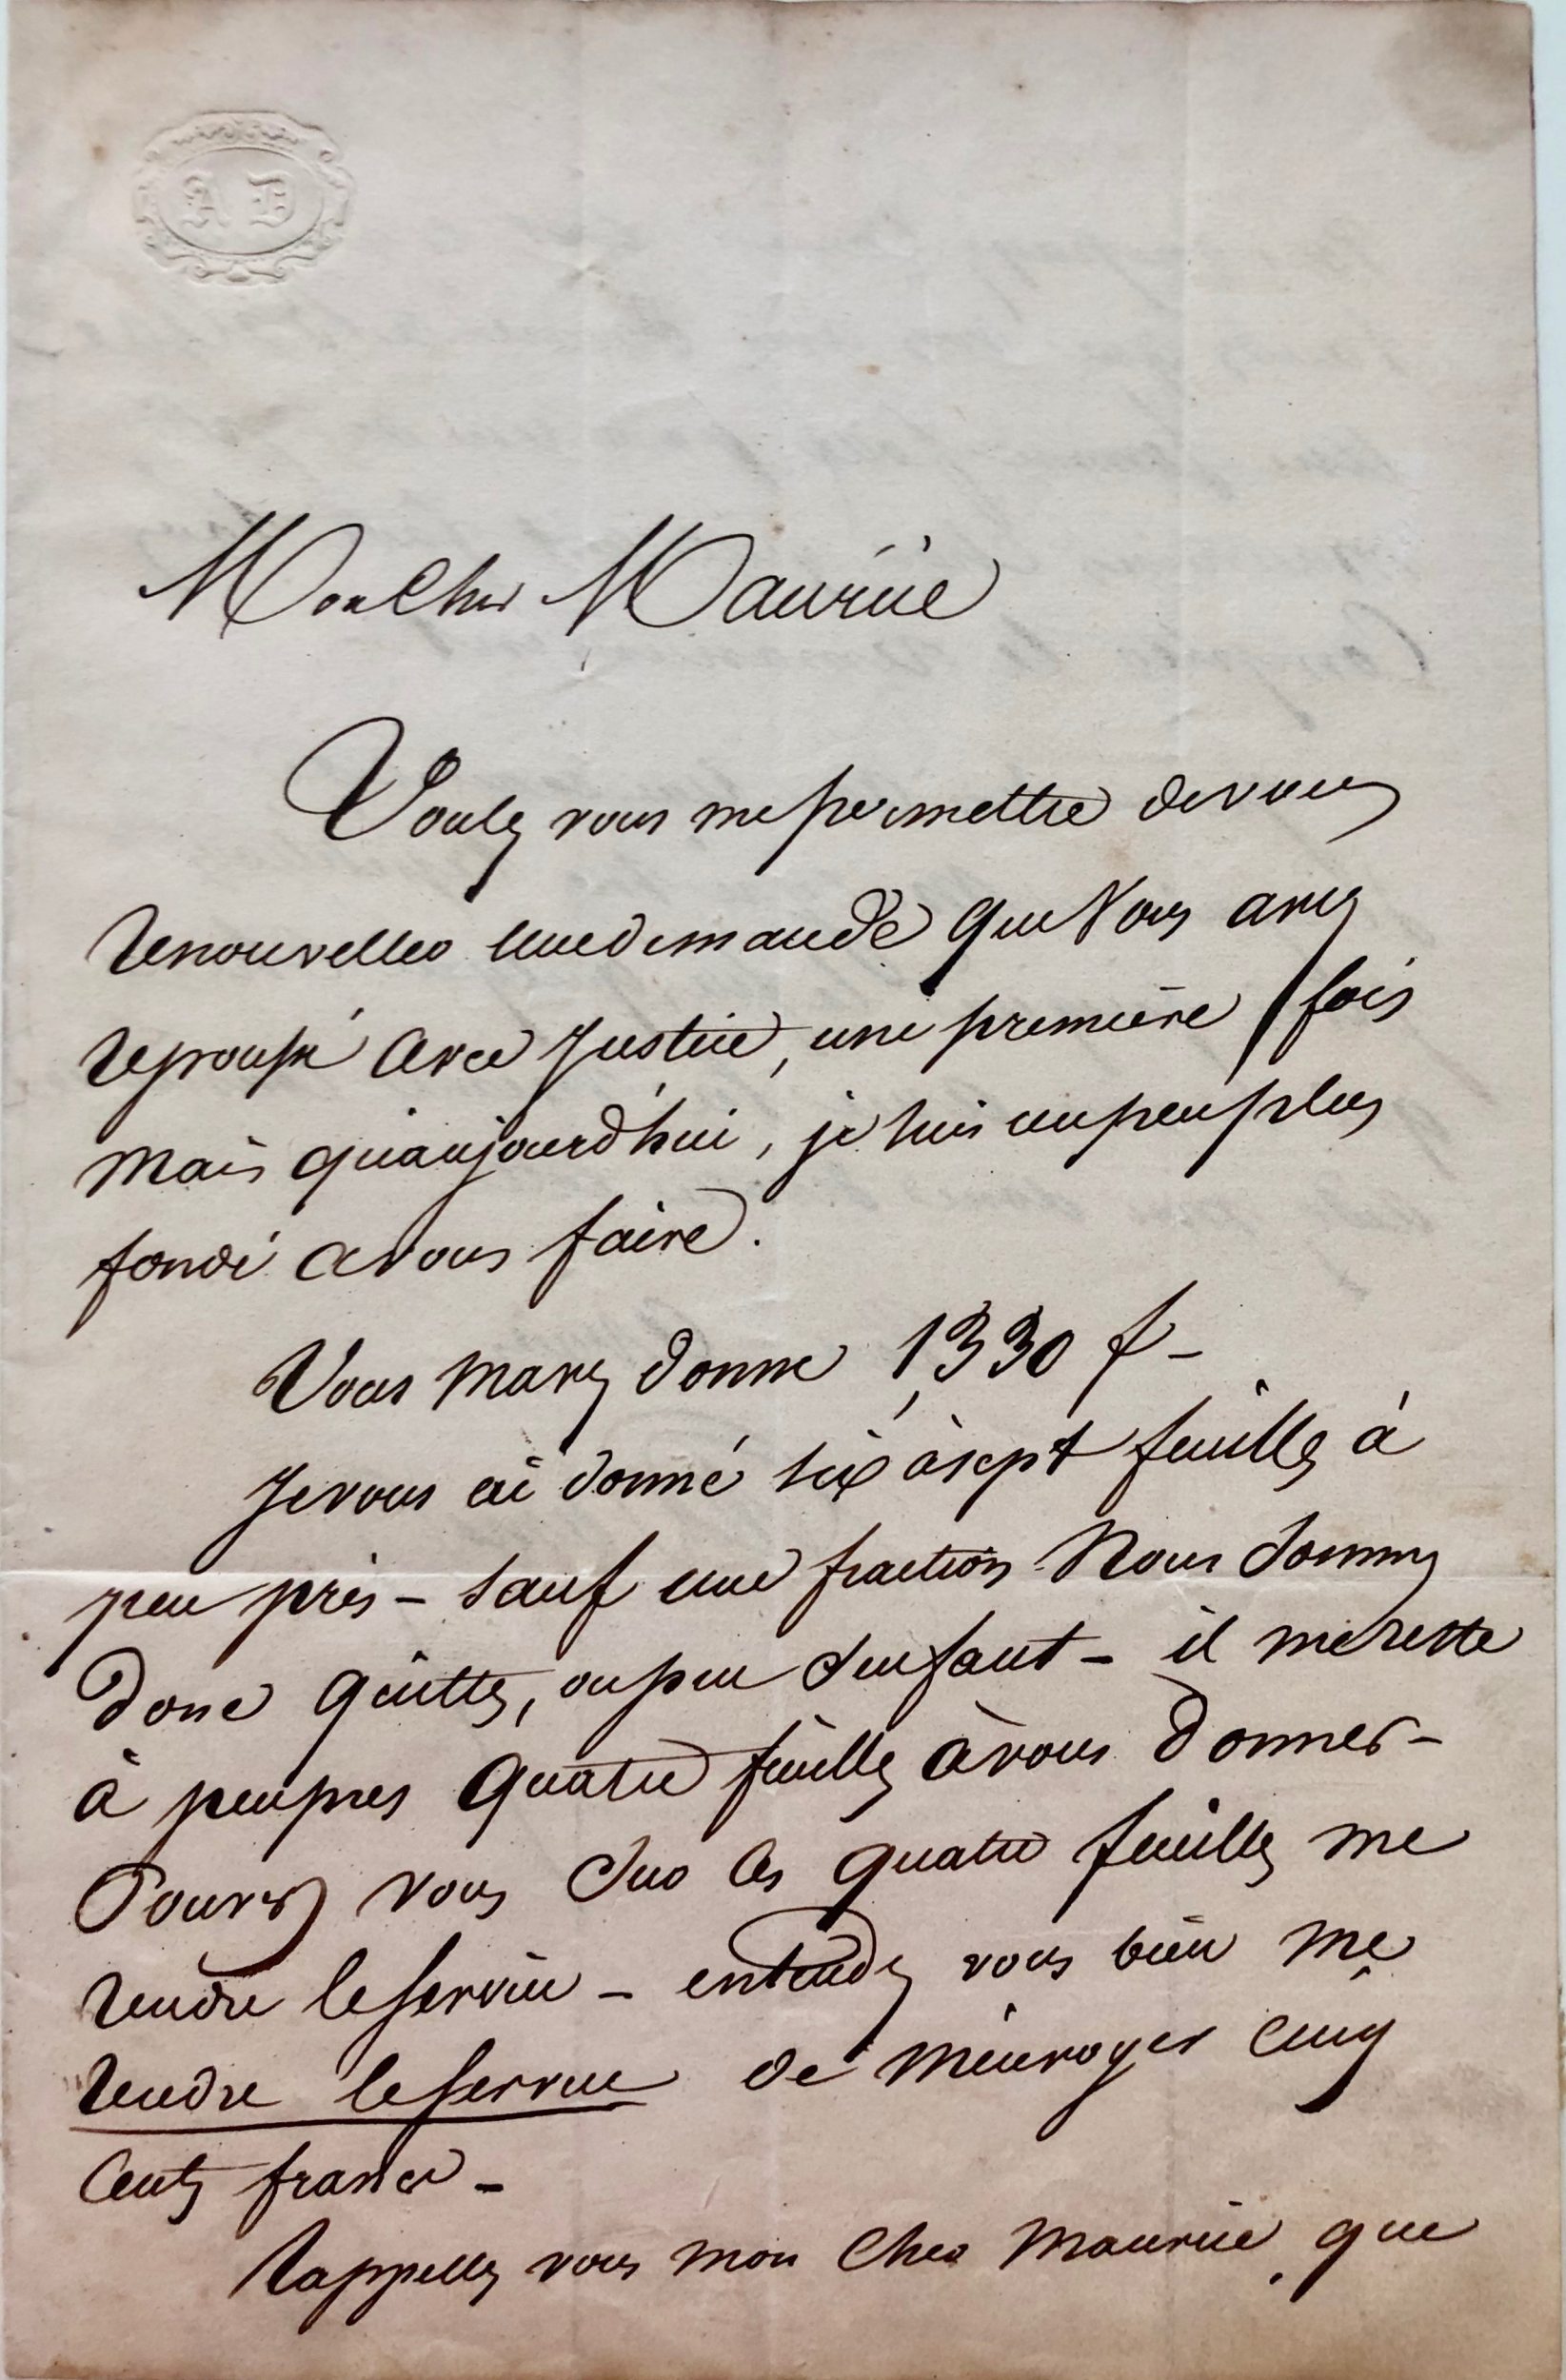 A D
Mon Cher Maurice
Voulez vous me permettre de vous
renouveller une demande que Vous avez
repoussé avec justice, une première fois
mais qu'aujourd'hui, je suis un peu plus
fondé a vous faire.
Vous mavez donné 1,330 f –
Je vous ai donné six à sept feuilles à
peu près – sauf une fraction Nous sommes
donc quittes, ou peu s'en faut – il me reste
à peu pres quatre feuilles à vous donner –
Pouvez vous sur les quatre feuilles me
rendre le service – entendez vous bien me
rendre le service de m'envoyer cinq
cents francs –
Rappellez vous mon cher Maurice, que